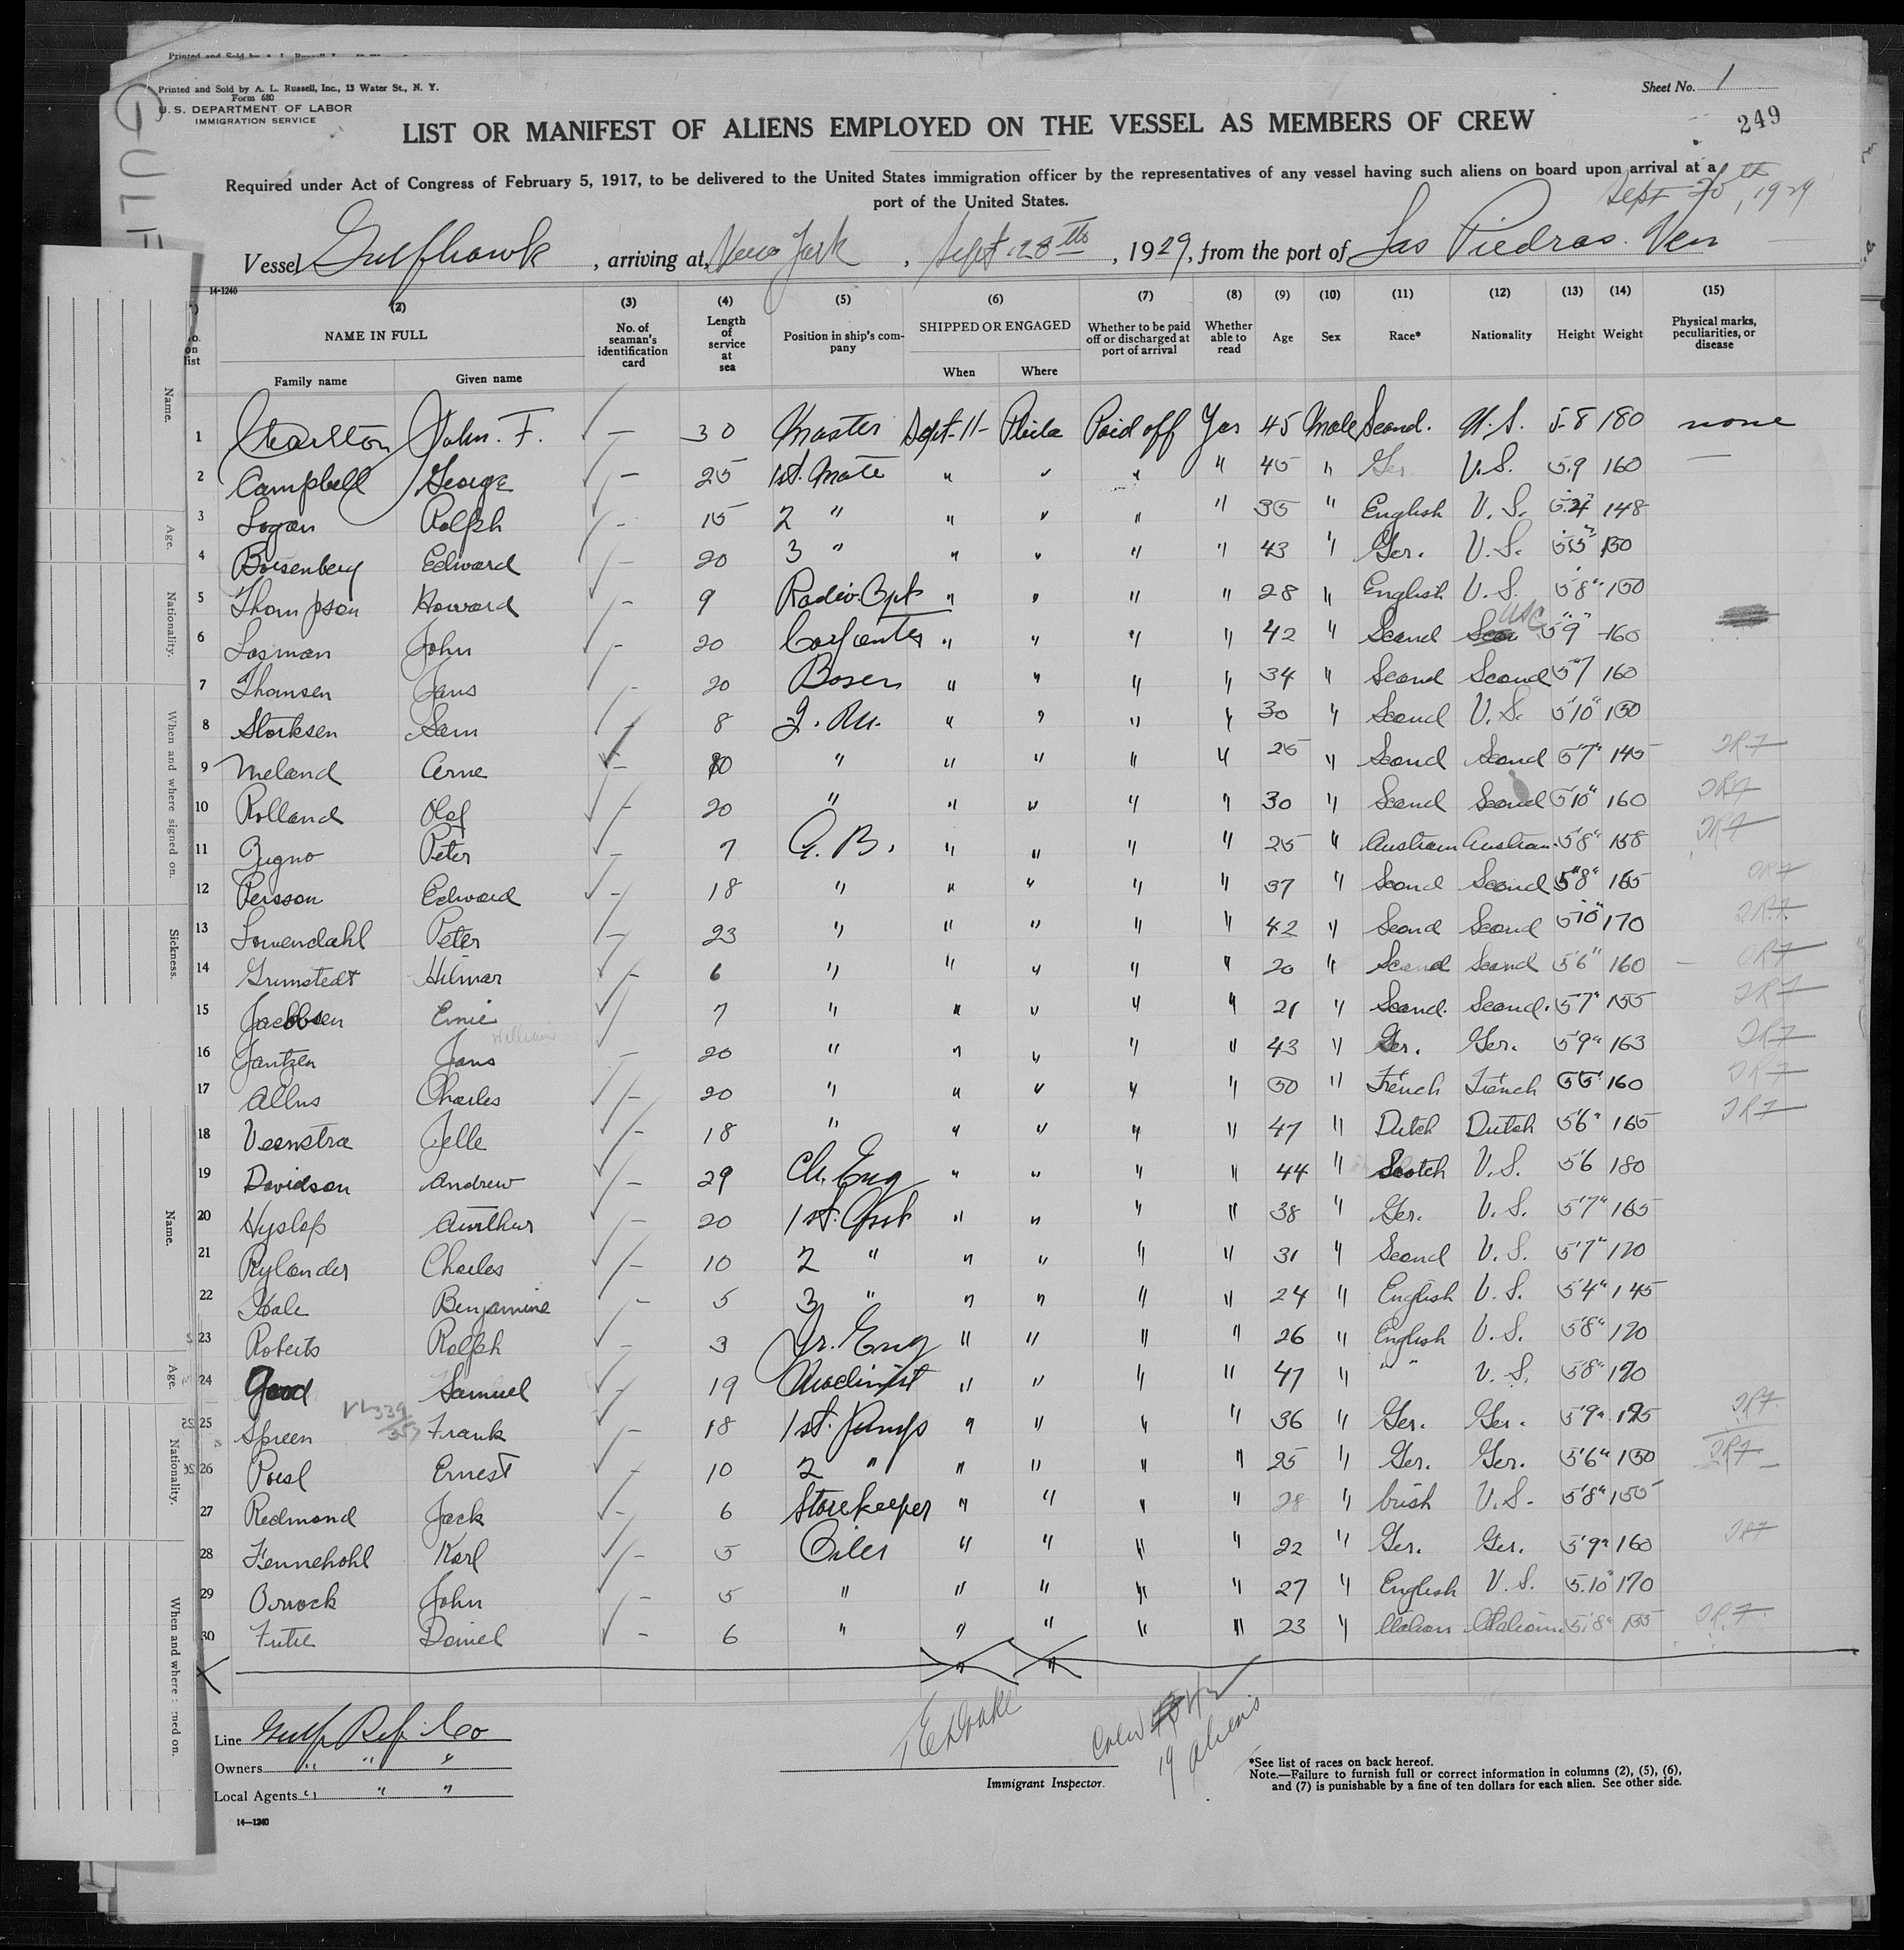 Printed and Sold by A. L. Russell, Inc., 13 Water St., N. Y.
Form 680
U. S. DEPARTMENT OF LABOR
IMMIGRATION SERVICE
Sheet No. 1
249
LIST OR MANIFEST OF ALIENS EMPLOYED ON THE VESSEL AS MEMBERS OF CREW
Required under Act of Congress of February 5, 1917, to be delivered to the United States immigration officer by the representatives of any vessel having such aliens on board upon arrival at a
port of the United States.
Sept 20th, 1929
Vessel Gulfhawk, arriving at, New York, Sept. 28th, 1929, from the port of Las Piedras. Ven
14-1240
(2) (3) (4) (5) (6) (7) (8) (9) (10) (11) (12) (13) (14) (15)
NAME IN FULL No. of seaman's identification card Length of service at sea Position in ship's company SHIPPED OR ENGAGED Whether to be paid off or discharged at port of arrival Whether able to read Age Sex Race* Nationality Height Weight Physical marks, peculiarities, or disease
Family name Given name When Where
1 Charlton John. F. 30 Master Sept-11- Phila Paid off Yes 45 Male Scand. U.S. 5-8 180 none
2 Campbell George 25 1st. Mate " " " " 45 " Ger U.S. 5.9 160
3 Logan Ralph 15 2 " " " " " 35 " English U.S. 148
4 Edward 20 3 " " " " " 43 " Ger. U.S. 5'5" 150
5 Thompson Howard 9 Radio Opt " " " " 28 " English U.S. 5'8" 150
6 Losman John 20 Carpenter " " " " 42 " Scand USC 5'9" 160
7 Thomsen Jans 20 Bosen " " " " 34 " Scand Scand 5"7 160
8 Storksen Sam 8 " " " " 30 " Scand U.S. 5'10" 150
9 Meland Arne 10 " " " " " 25 " Scand Scand 5'7" 145
10 Rolland Olaf 20 " " " " " 30 " Scand Scand 5'10" 160
11 Zugno Peter 7 A.B. " " " " 25 " Austrian Austrian 5'8" 158
12 Persson Edward 18 " " " " " 37 " Scand Scand 5"8" 165
13 Lowendahl Peter 23 " " " " " 42 " Scand Scand 5'10" 170
14 Grimstedt Hilmar 6 " " " " " 20 " Scand Scand 5'6" 160
15 Jacobsen Ernie 7 " " " " " 21 " Scand. Scand. 5'7" 155
William
16 Jantzen Jans 20 " " " " " 43 " Ger. Ger. 5'9" 163
17 Allus Charles 20 " " " " " 50 " French French 5'5" 160
18 Veenstra Jelle 18 " " " " " 47 " Dutch Dutch 5'6" 165
19 Davidson Andrew 29 Ch. Eng " " " " 44 " Scotch U.S. 5'6 180
20 Hyslop Aurthur 20 1st. Asst " " " " 38 " Ger. U.S. 5'7" 165
21 Rylander Charles 10 2 " " " " " 31 " Scand U.S. 5'7" 170
22 Benjamine 5 3 " " " " " 24 " English U.S. 5'4" 145
23 Roberts Ralph 3 Jr. Eng " " " " 26 " English U.S. 5'8" 170
24 Good Samuel 19 Machinist " " " " 47 " " " U.S. 5'8" 170
25 Spreen Frank 18 1st. Pumps " " " " 36 " Ger. Ger. 5'9" 175
26 Poesl Ernest 10 2 " " " " " 25 " Ger. Ger. 5'6" 150
27 Redmond Jack 6 Storekeeper " " " " 28 " Irish U.S. 5'8" 155
28 Fennehohl Karl 5 Oiler " " " " 22 " Ger. Ger. 5'9" 160
29 Orrock John 5 " " " " " 27 " English U.S. 5.10" 170
30 Daniel 6 " " " " " 23 " Italian Italian 5'8" 155
Line Gulf Ref. Co
Owners " " "
Local Agents " " "
14—1240
Immigrant Inspector.
19 aliens
*See list of races on back hereof.
Note.—Failure to furnish full or correct information in columns (2), (5), (6),
and (7) is punishable by a fine of ten dollars for each alien. See other side.
Name.
Age.
Nationality.
When and where signed on.
Sickness.
Name.
Age.
Nationality.
When and where